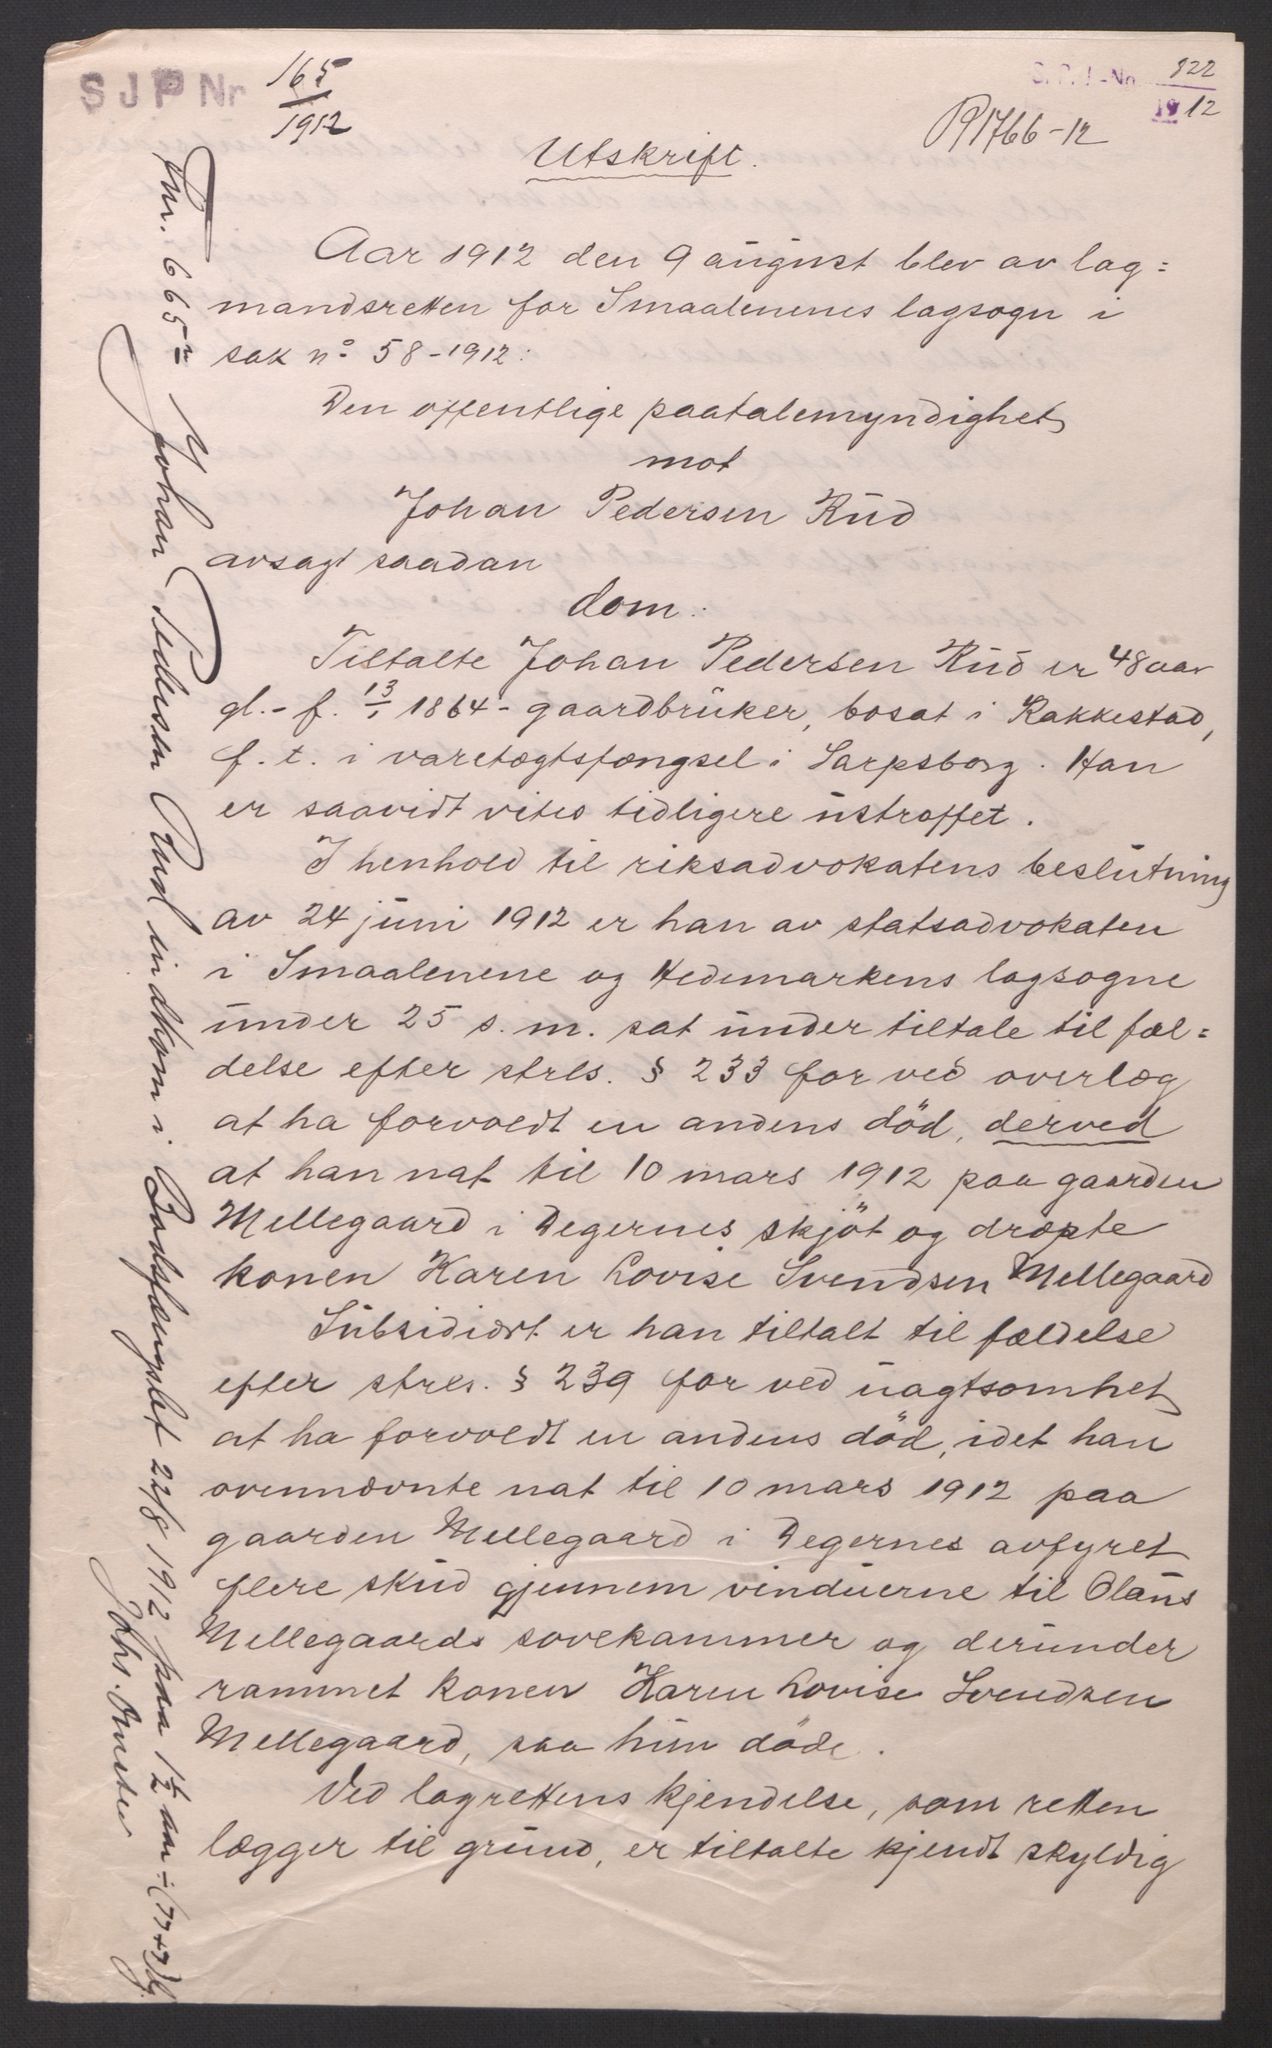 SJP Nr 165/1912
S.P.J-No. 822/1912
P 1766-12
Utskrift.
Aar 1912 den 9 august blev av lag=
mandsretten for Smaalenenes lagsogn i
sak no 58-1912:
Den offentlige paatalemyndighet
mot
Johan Pedersen Rud
avsagt saadan
dom:
Tiltalte Johan Pedersen Rud er 48 aar
gl. - f. 13/1 1864 - gaardbruker, bosat i Rakkestad,
f. t. i varetægtsfængsel i Sarpsborg. Han
er saavidt vites tidligere ustraffet.
I henhold til riksadvokatens beslutning
av 24 juni 1912 er han av statsadvokaten
i Smaalenene og Hedemarkens lagsogne
under 25 s. m. sat under tiltale til fæl=
delse efter strls. § 233 for ved overlæg
at ha forvoldt en andens død, derved
at han nat til 10 mars 1912 paa gaarden
Mellegaard i Degernes skjøt og dræpte
konen Karen Lovise Svendsen Mellegaard
Subsidiært er han tiltalt til fældelse
efter strls. § 239 for ved uagtsomhet
at ha forvoldt en andens død, idet han
ovennævnte nat til 10 mars 1912 paa
gaarden Mellegaard i Degernes avfyret
flere skud gjennem vinduerne til Olaus
Mellegaards sovekammer og derunder
rammet konen Karen Lovise Svendsen
Mellegaard, saa hun døde.
Ved lagrettens kjendelse, som retten
lægger til grund, er tiltalte kjendt skyldig
Fnr. 665 Johan Pedersen Rud indkom i Bodsfængslet 22/8 1912 paa 1 1/2 aar ÷ (77+7) dg.
Johs.